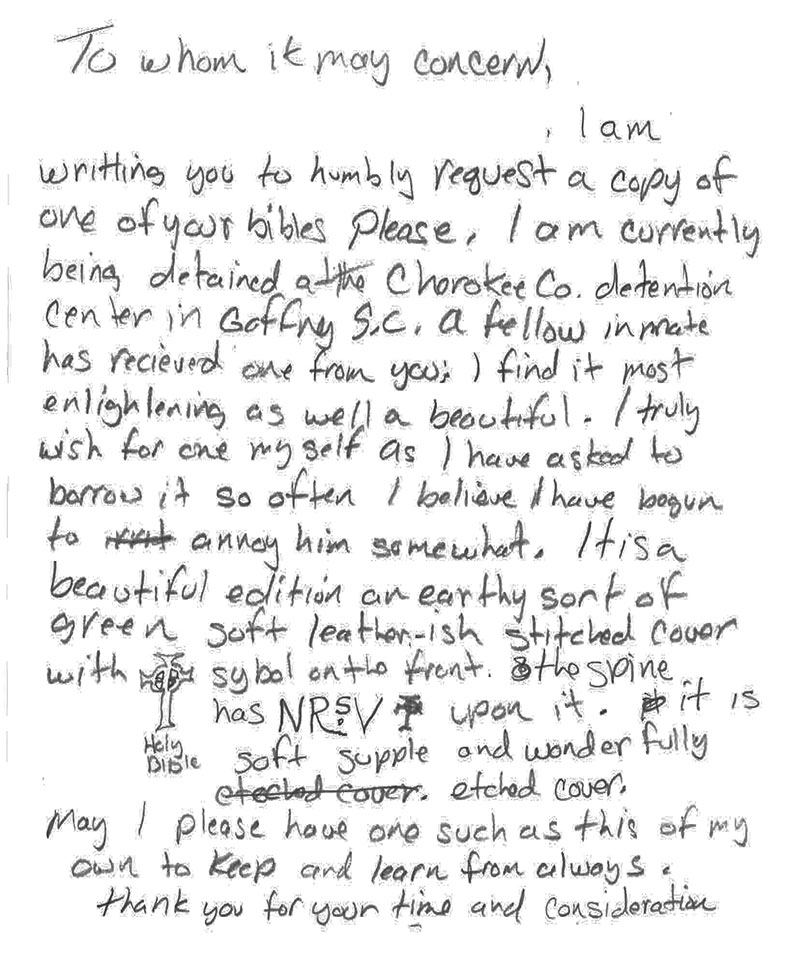 To whom it may concern,
I am
writting you to humbly request a copy of
one of your bibles Please. I am currently
being detained at the Chorokee Co. detention
Center in Goffny S.C. a fellow inmate
has recieved one from you; I find it most
enlightening as well a beautiful. I truly
wish for one myself as I have asked to
borrow it so often I believe I have begun
to annoy him somewhat. It is a
beautiful edition an earthy sort of
green soft leather-ish stitched cover
with sybol on the front. the spine
has NRSV upon it. it is
Holy
Bible
soft supple and wonderfully
eteched cover. etched cover.
May I please have one such as this of my
own to keep and learn from always.
thank you for your time and consideration